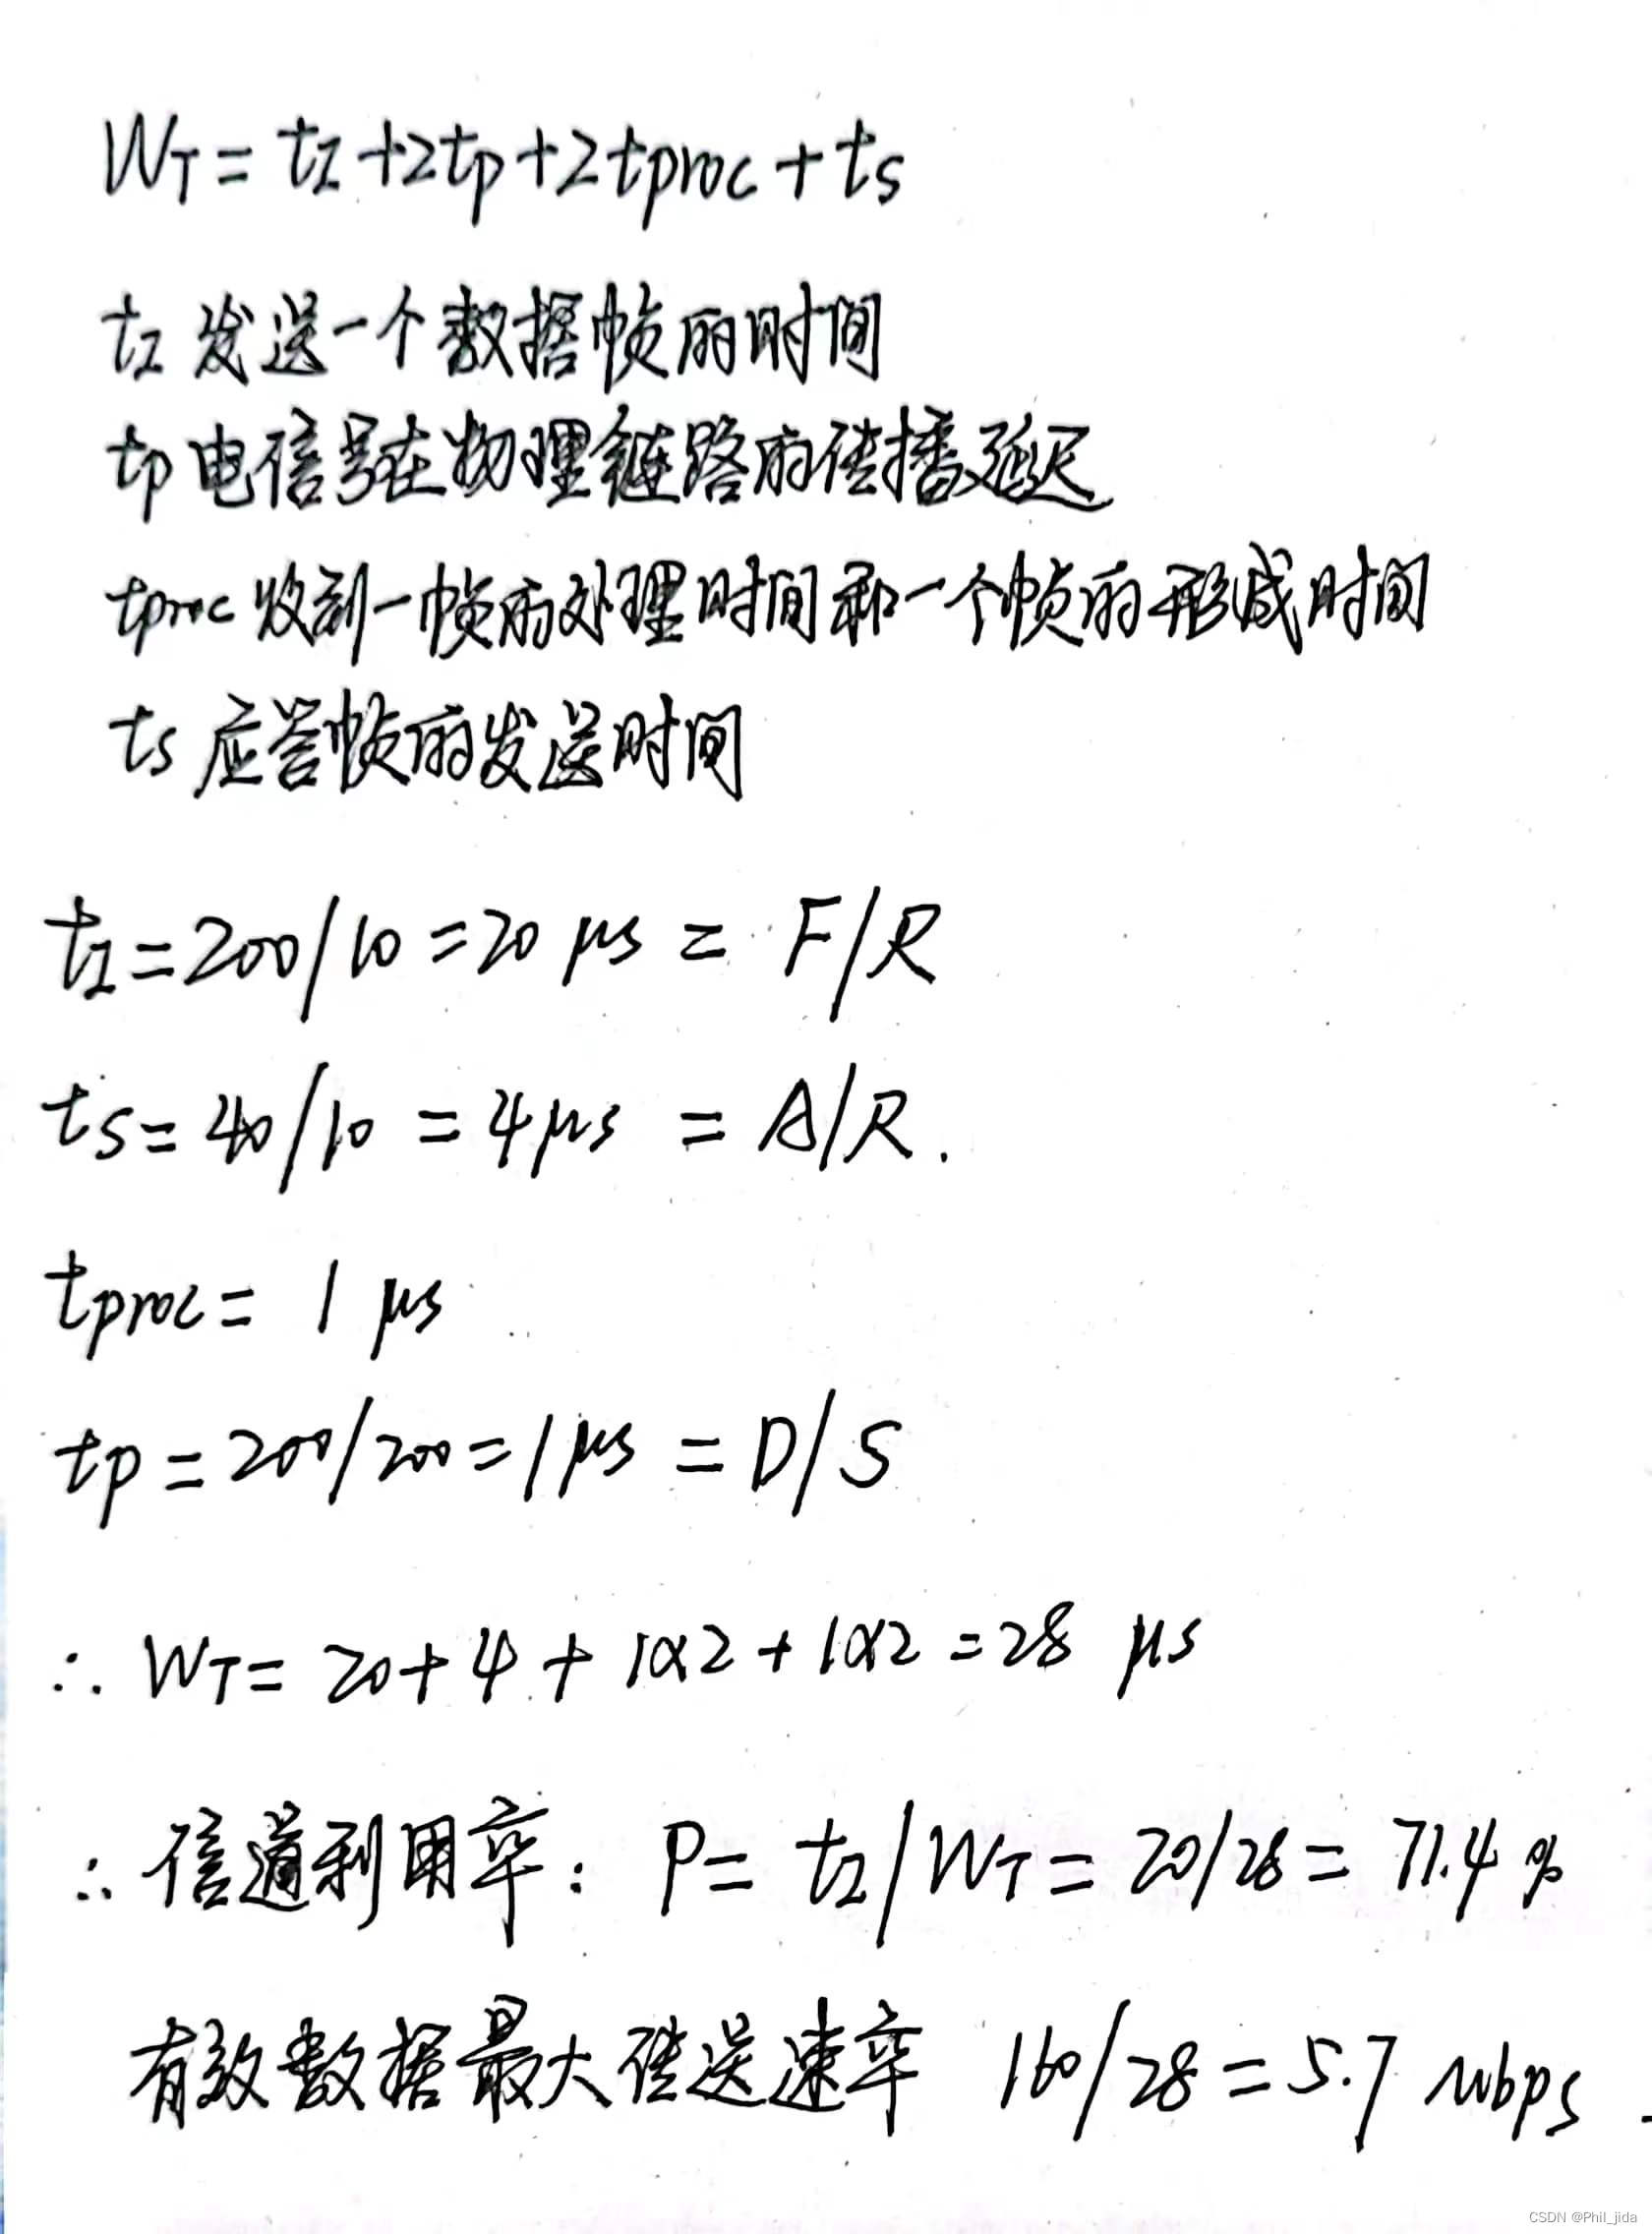 WT = tI + 2tp + 2tproc + ts
tI 发送一个数据帧的时间
tp 电信号在物理链路的传播延迟
tproc 收到一帧的处理时间和一个帧的形成时间
ts 应答帧的发送时间
tI = 200/10 = 20 μs = F/R
ts = 40/10 = 4μs = A/R.
tproc = 1 μs
tp = 200/200 = 1μs = D/S
∴ WT = 20 + 4 + 1×2 + 1×2 = 28 μs
∴ 信道利用率: P = tI/WT = 20/28 = 71.4 %
有效数据最大传送速率 160/28 = 5.7 Mbps.
CSDN @Phil_jida